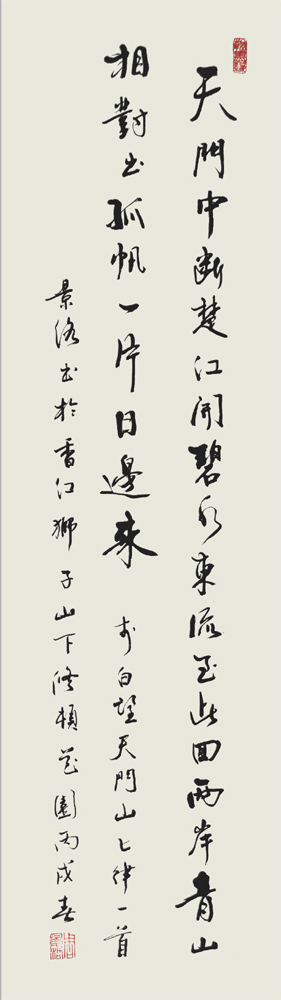 天門中斷楚江開碧水東流至此回兩岸青山
相對出孤帆一片日邊來 李白望天門山七律一首
景洛書於香江獅子山下修頓花園丙戌春